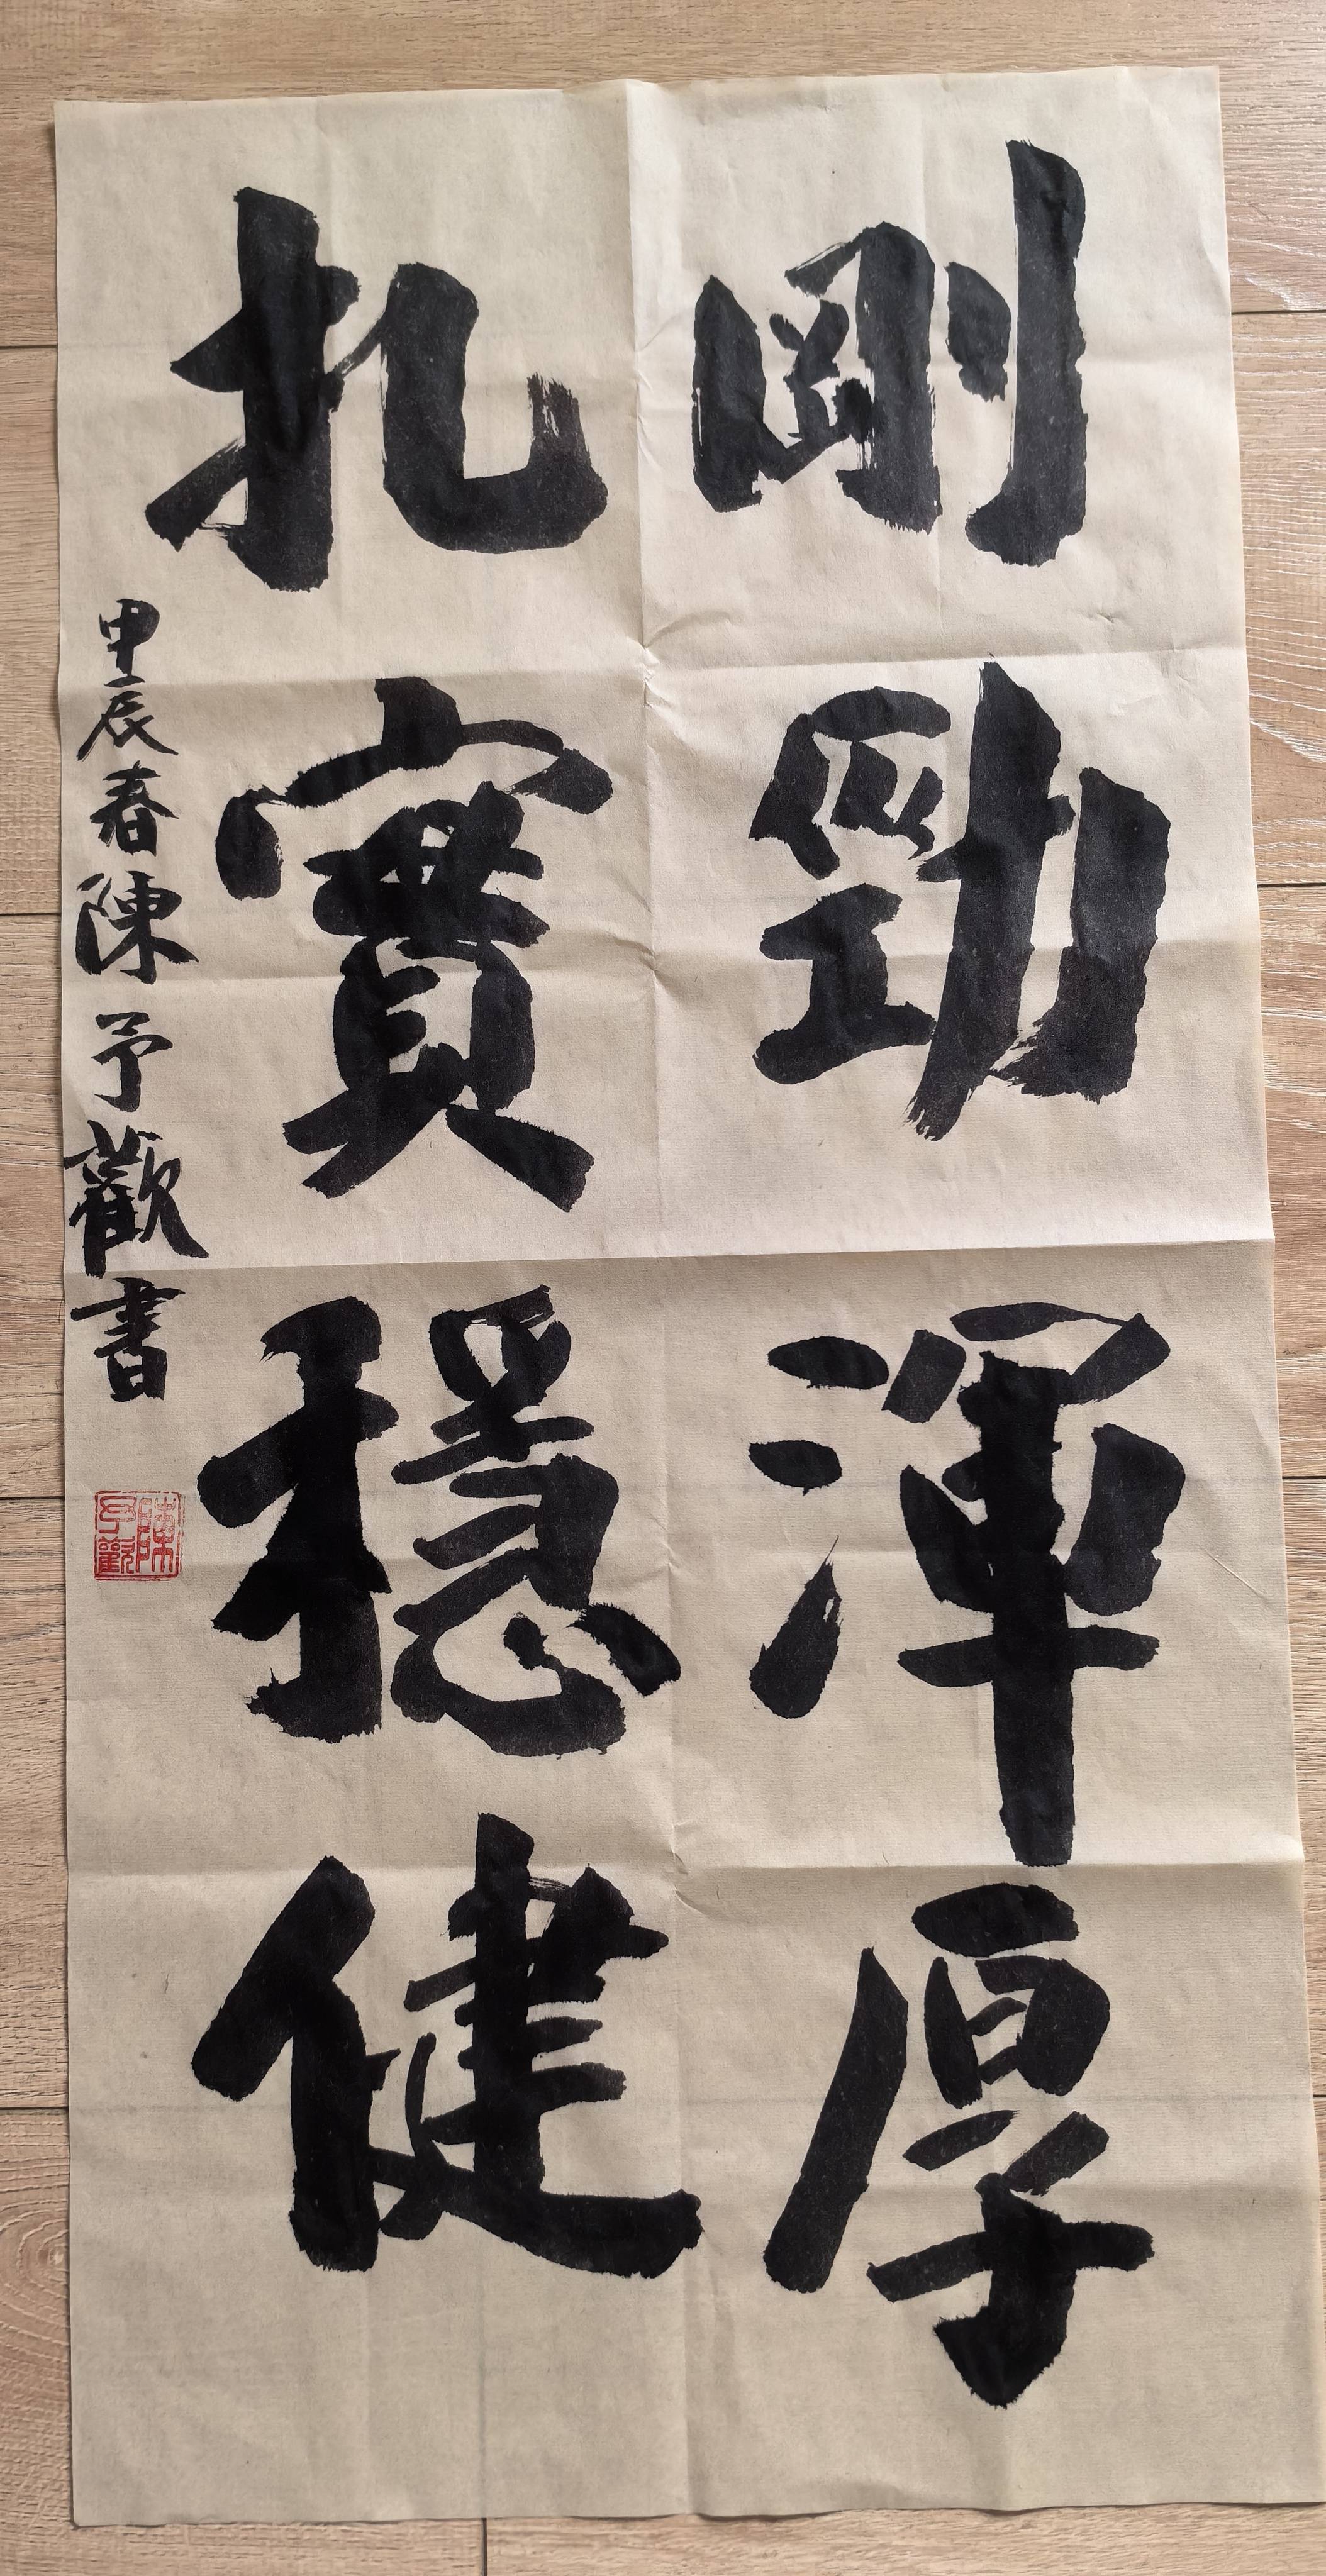 剛勁渾厚
扎實穩健
甲辰春陳予歡書
陳予歡